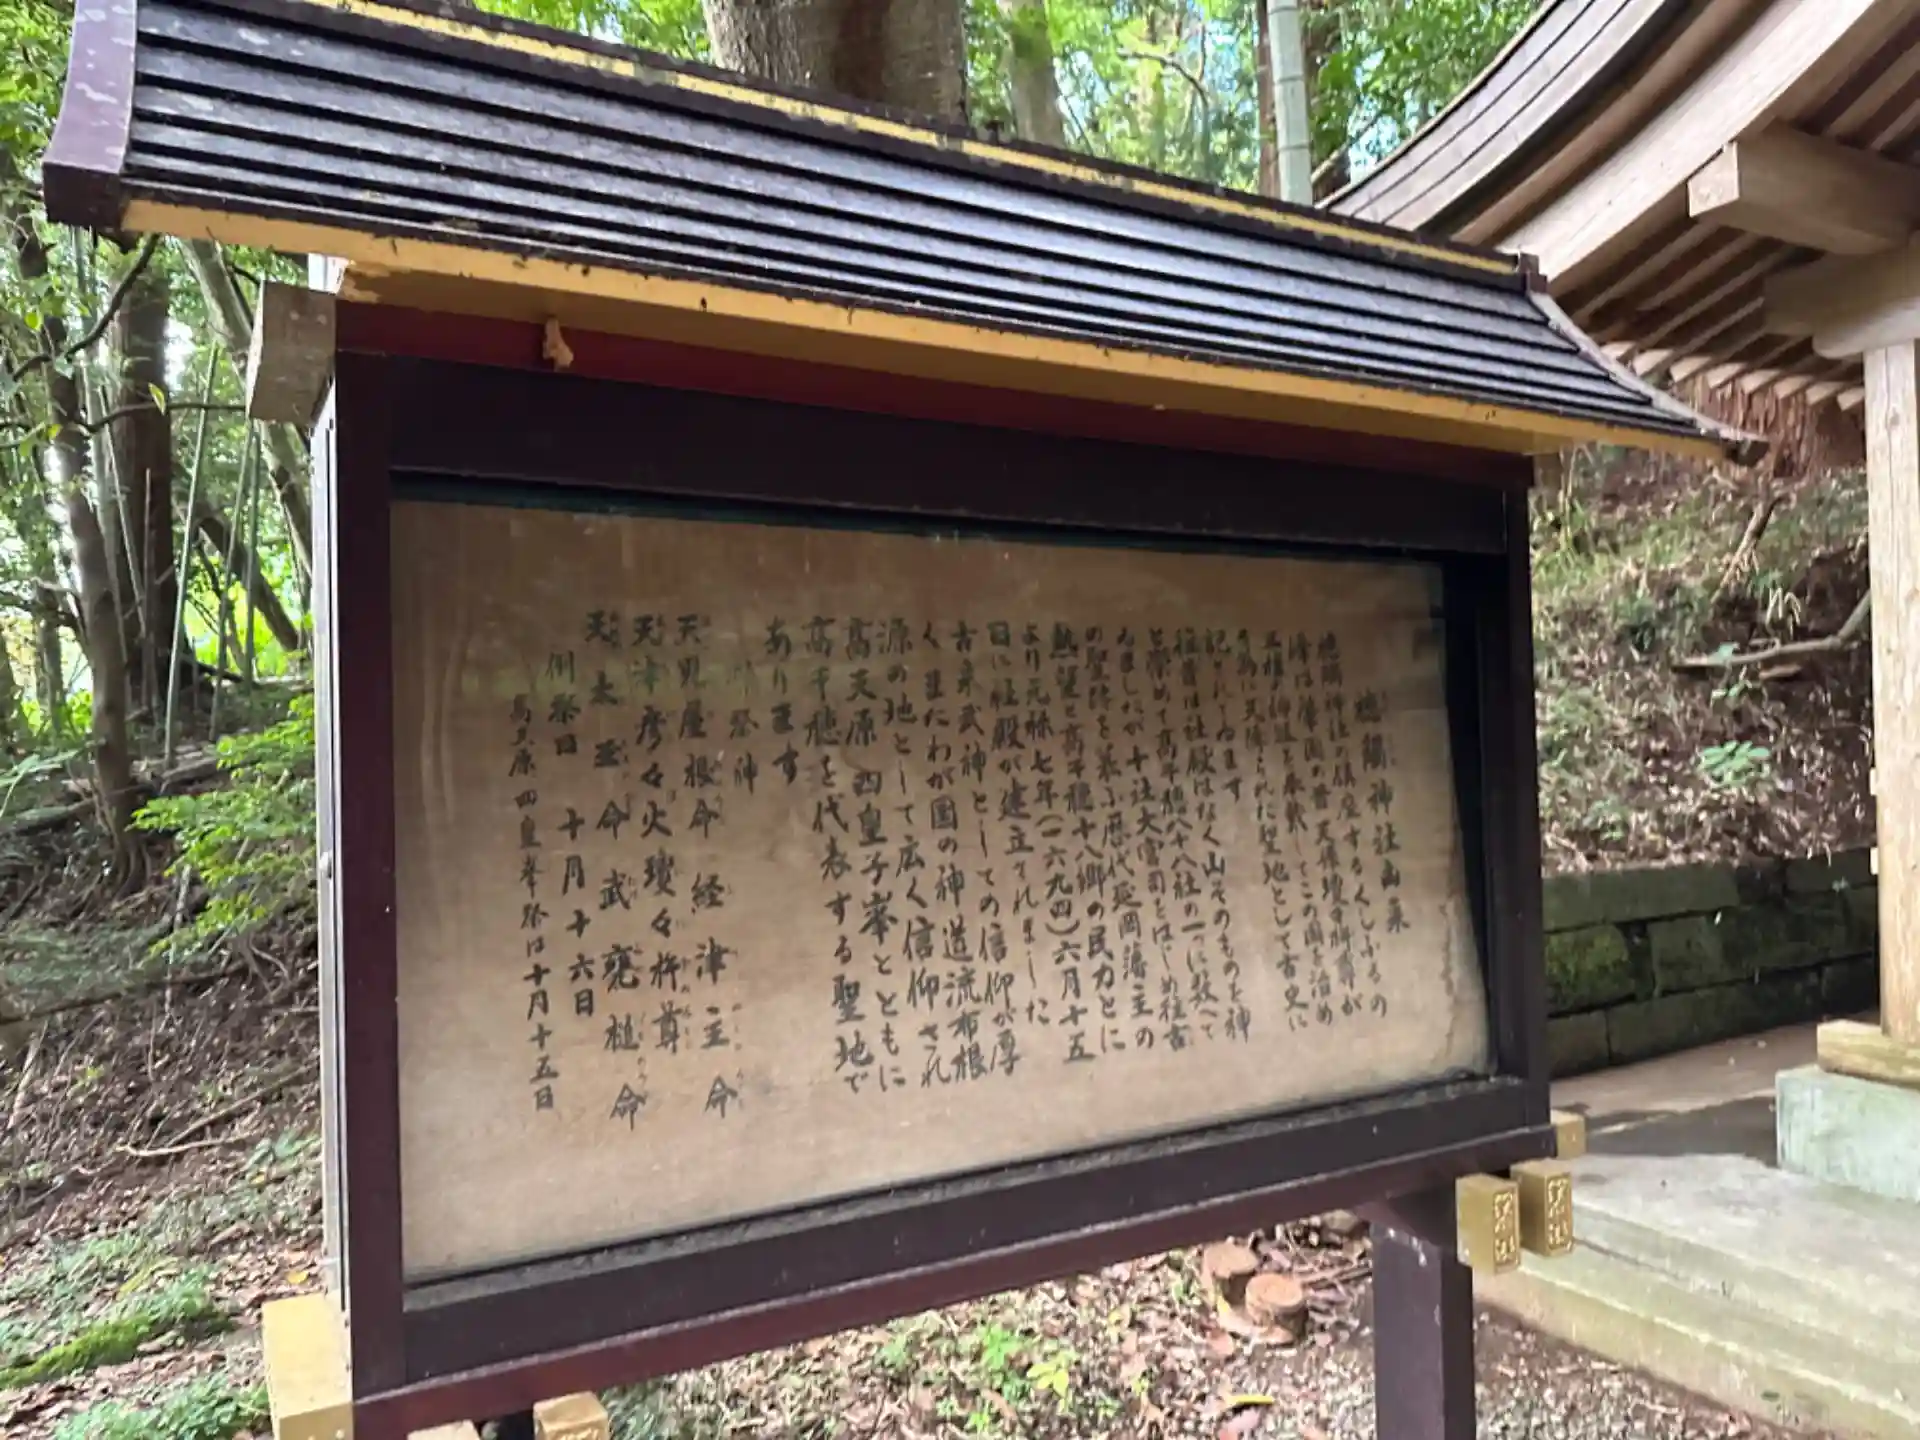 槵觸神社由来
槵觸神社の鎮座するくしふるの
峰は肇国の昔天孫瓊々杵尊が
三種の神器を奉戴してこの国を治め
う為に天降られた聖地として古史に
記されてゐます
往昔は社殿はなく山そのものを神
と崇めて高千穂八十八社の一つに数へて
ゐましたが十社大宮司をはじめ往古
の聖跡を慕ふ歴代延岡藩主の
熱望と高千穂十八郷の民力とに
より元禄七年(一六九四)六月十五
日に社殿が建立されました
古来武神としての信仰が厚
くまたわが国の神道流布根
源の地として広く信仰され
高天原四皇子峯とともに
高千穂を代表する聖地で
あります
祭神
天児屋根命 経津主命
天津彦々火瓊々杵尊
天太玉命 武甕槌命
例祭日 十月十六日
高天原四皇峯祭は十月十五日